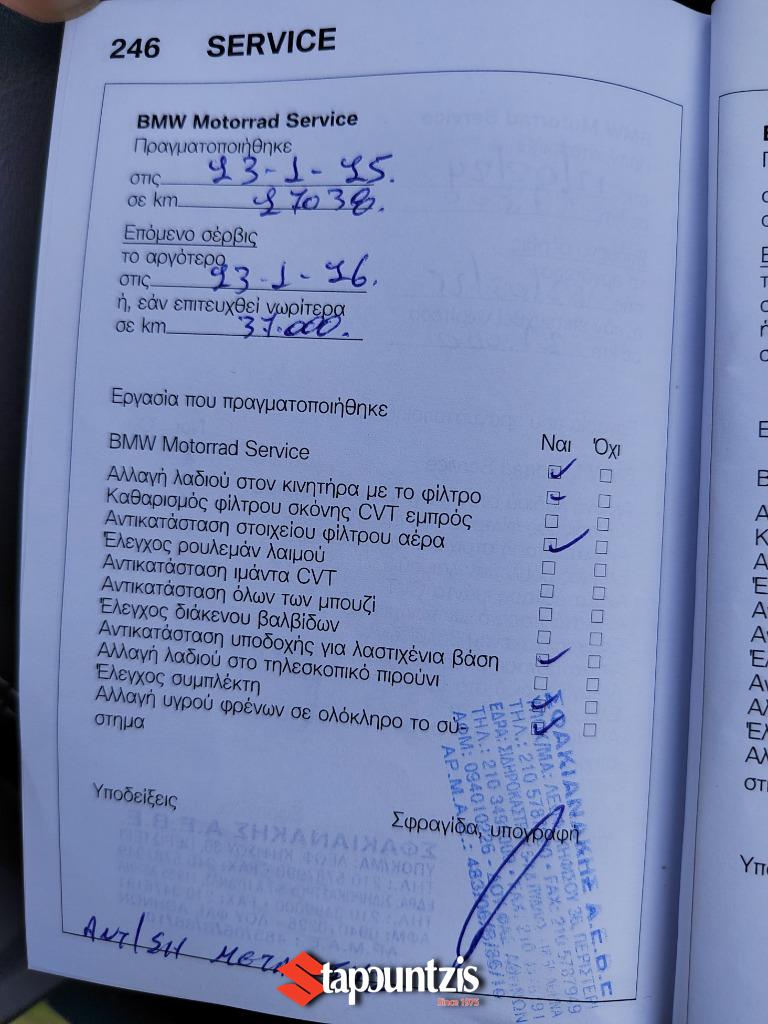 246 SERVICE
BMW Motorrad Service
Πραγματοποιήθηκε
στις 23-1-25.
σε km 27038.
Επόμενο σέρβις
το αργότερο
στις 23-1-26.
ή, εάν επιτευχθεί νωρίτερα
σε km 37.000.
Εργασία που πραγματοποιήθηκε
BMW Motorrad Service Ναι Όχι
Αλλαγή λαδιού στον κινητήρα με το φίλτρο
Καθαρισμός φίλτρου σκόνης CVT εμπρός
Αντικατάσταση στοιχείου φίλτρου αέρα
Έλεγχος ρουλεμάν λαιμού
Αντικατάσταση ιμάντα CVT
Αντικατάσταση όλων των μπουζί
Έλεγχος διάκενου βαλβίδων
Αντικατάσταση υποδοχής για λαστιχένια βάση
Αλλαγή λαδιού στο τηλεσκοπικό πιρούνι
Έλεγχος συμπλέκτη
Αλλαγή υγρού φρένων σε ολόκληρο το σύ-
στημα
Υποδείξεις
Σφραγίδα, υπογραφή
ΣΦΑΚΙΑΝΑΚΗΣ Α.Ε.Β.Ε
ΑΝΤ/ΣΗ
Stapountzis
Since 1975